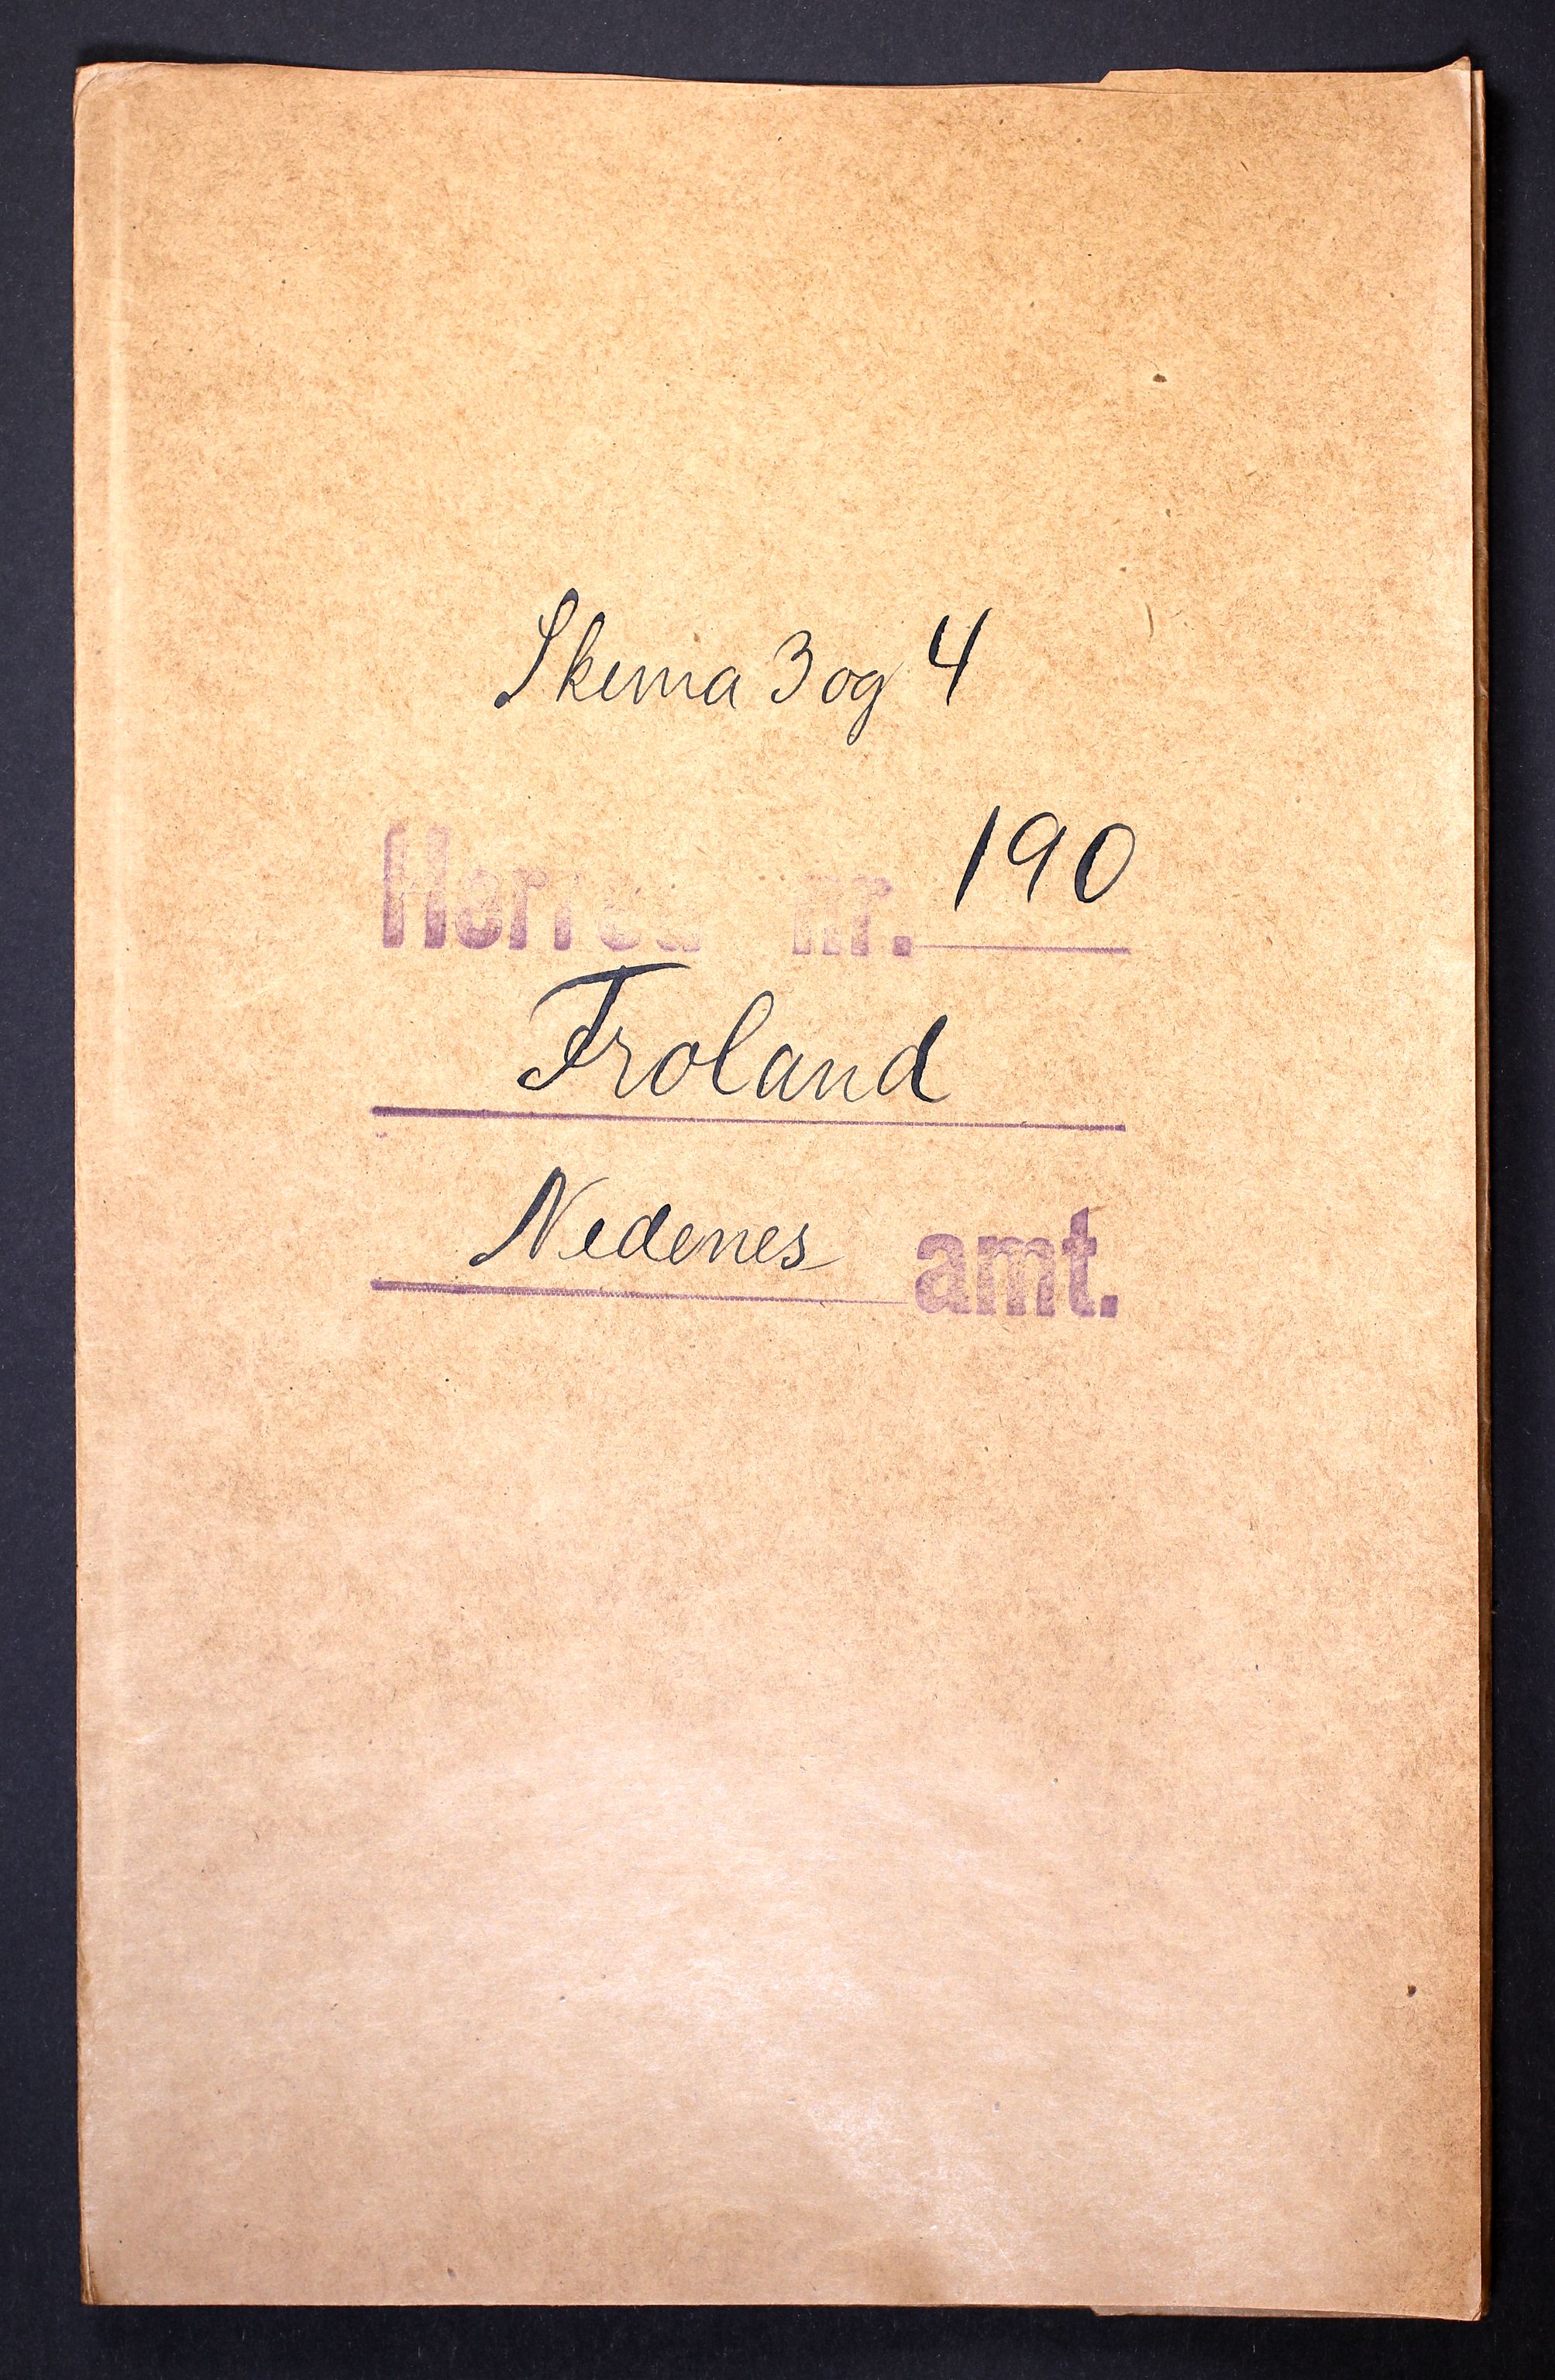 Skema 3 og 4
Herred nr. 190
Froland
Nedenes amt.